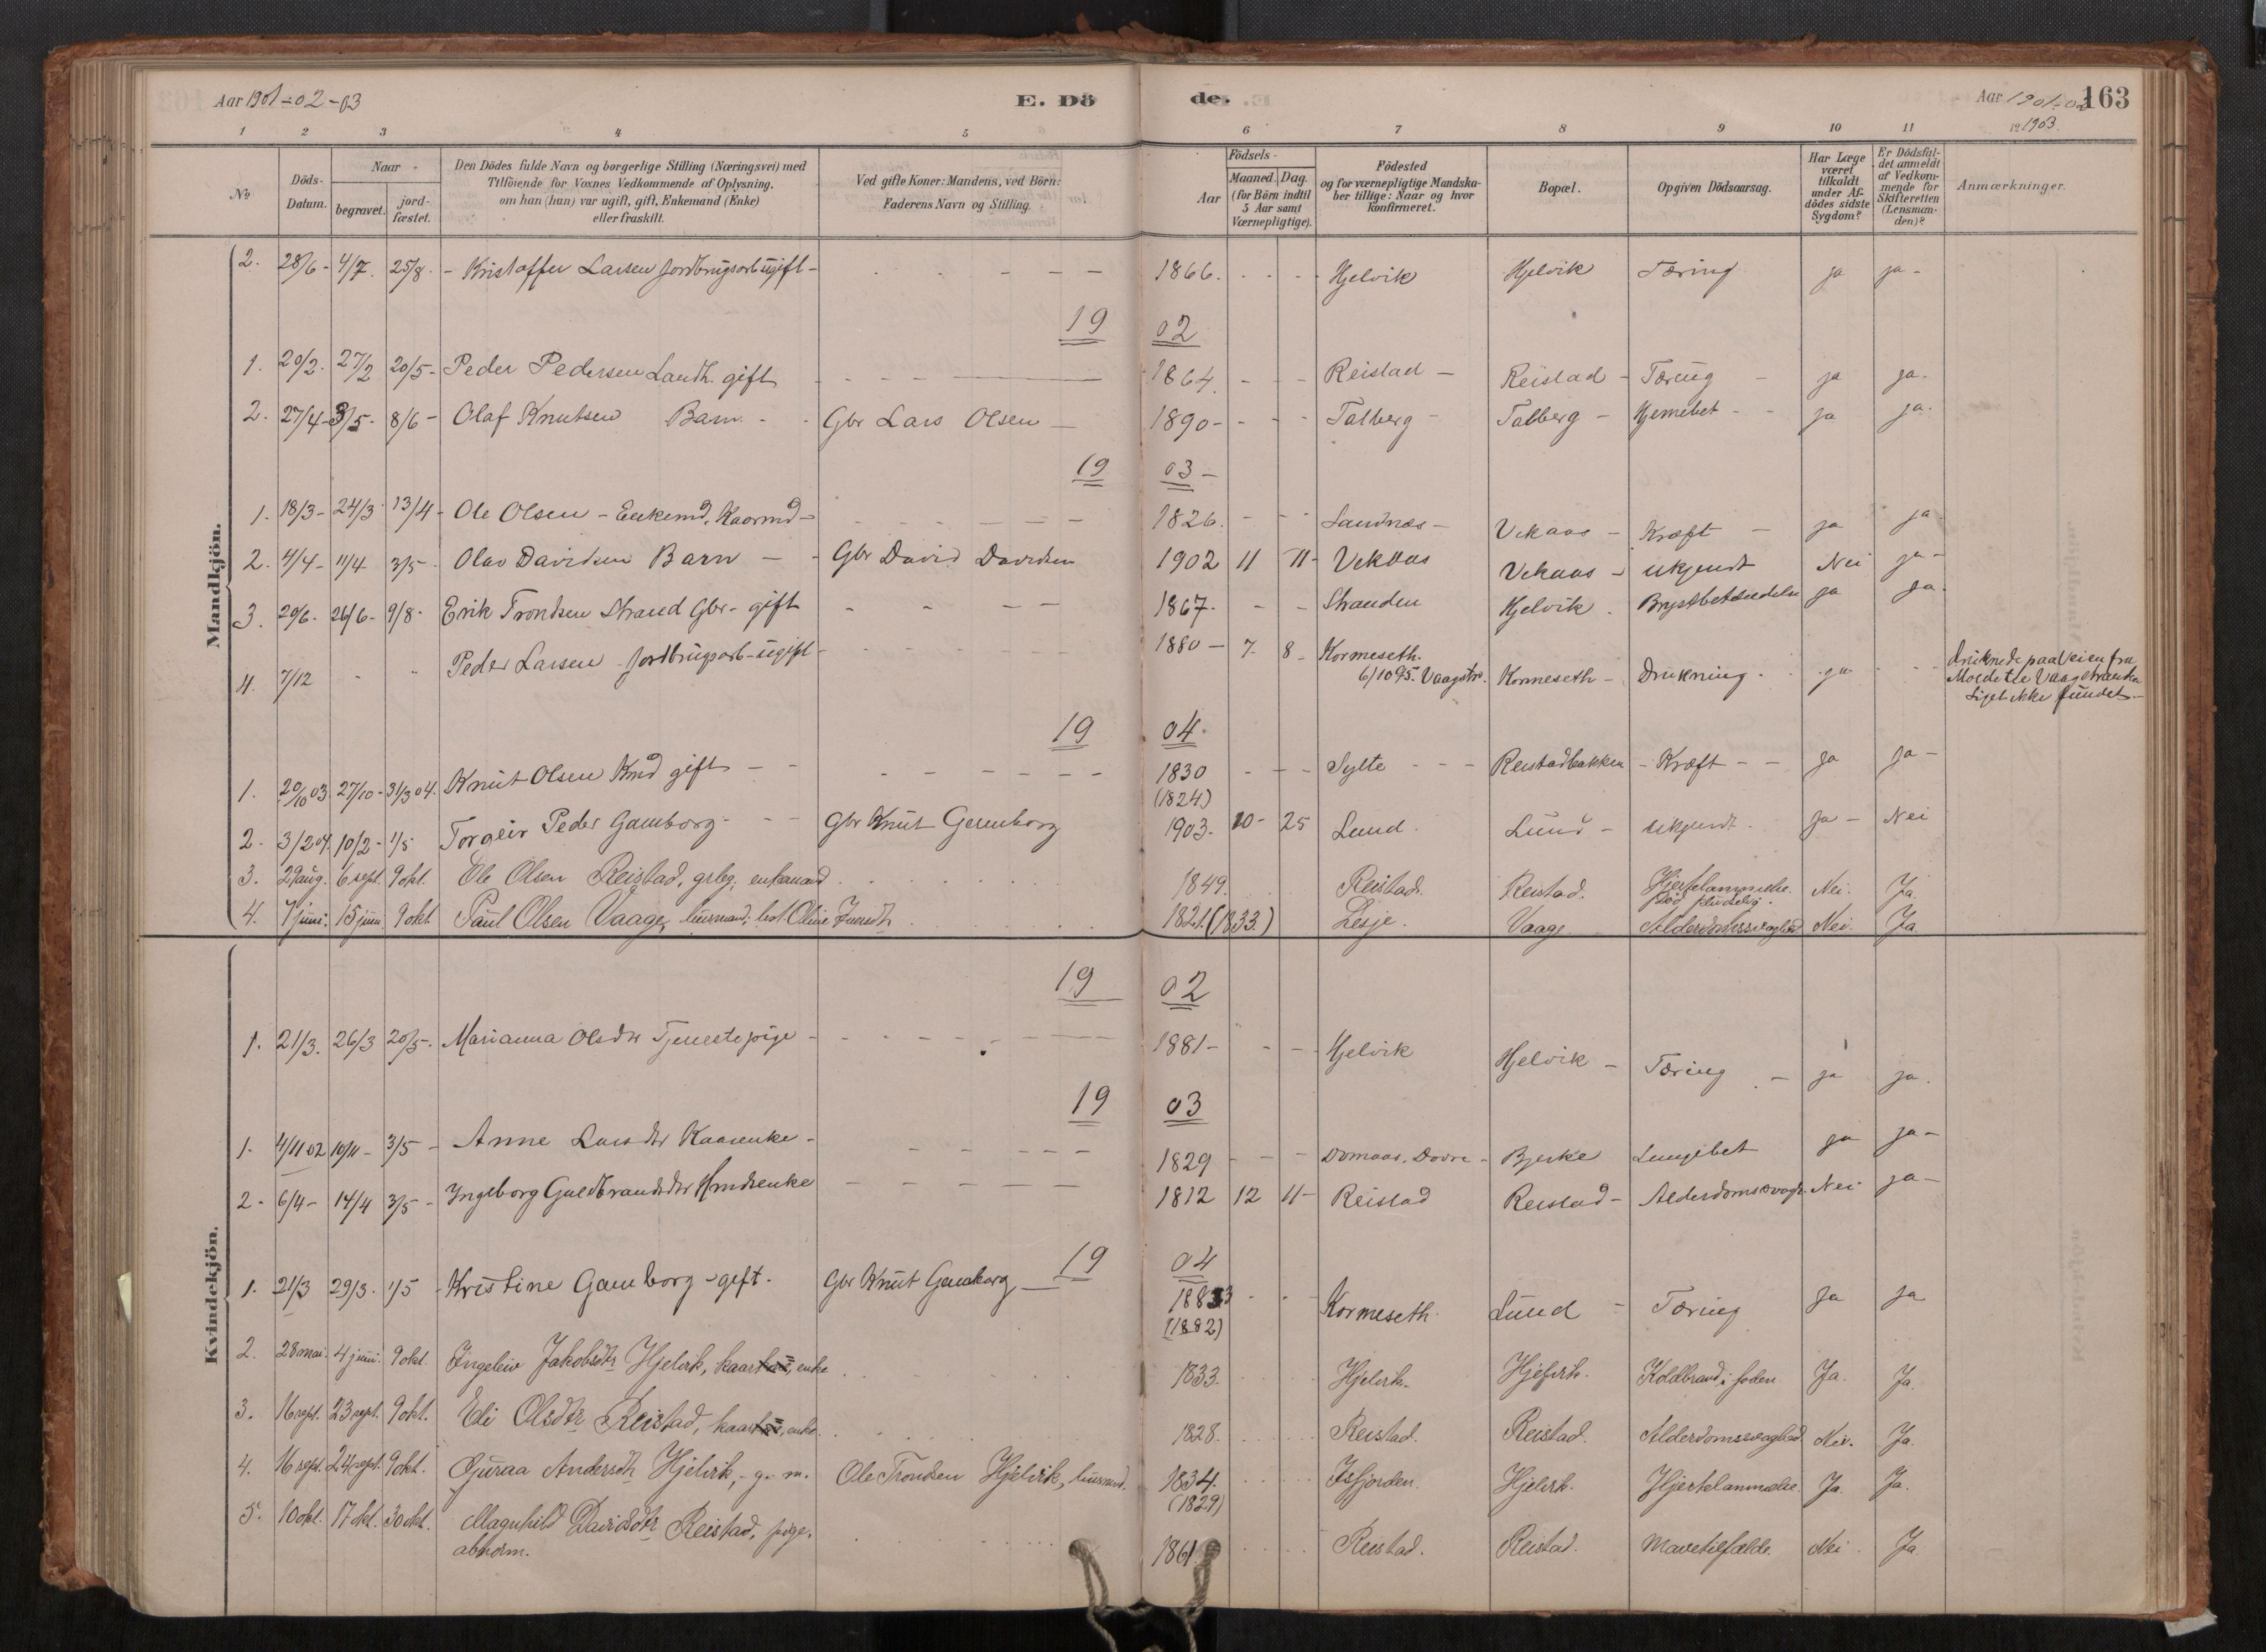 Aar 1901-02-03 E. Dö de. Aar 1901-02 163
1903.
1 2 3 4 5 6 7 8 9 10 11 12
No. Döds-Datum. Naar begravet. jord-fæstet. Den Dödes fulde Navn og borgerlige Stilling (Næringsvei) med Tilföiende for Voxnes Vedkommende af Oplysning, om han (hun) var ugift, gift, Enkemand (Enke) eller fraskilt. Ved gifte Koner: Mandens, ved Börn: Faderens Navn og Stilling. Födsels- Aar Maaned. Dag. (for Börn indtil 5 Aar samt Værnepligtige). Födested og for værnepligtige Mandska-ber tillige: Naar og hvor konfirmeret. Bopæl. Opgiven Dödsaarsag. Har Læge været tilkaldt under Af-dödes sidste Sygdom? Er Dödsfal-det anmeldt af Vedkom-mende for Skifteretten (Lensman-den)? Anmærkninger.
Mandkjön.
2. 28/6 - 4/7. 25/8. - Kristoffer Larsen Jordbrugsarb ugift - 1866. Hjelvik Hjelvik Tæring ja ja -
19 02
1. 20/2. 27/2 20/5 - Peder Pedersen Landh. gift 1864. Reistad - Reistad - Tæring - ja ja.
2. 27/4 - 3/5 - 8/6 - Olaf Knutsen Barn - Gbr Lars Olsen - 1890 - Talberg - Talberg - Hjernebet - ja ja.
19 03 -
1. 18/3 - 24/3 13/4 - Ole Olsen - Enkemd, Kaarmd - 1826. Landnæs - Vekaas - Kræft - ja ja
2. 4/4 - 11/4 3/5 - Olav Davidsen Barn - Gbr David Davidsen 1902 11 11 - Vekaas Vekaas - ukjendt Nei ja -
3. 20/6 - 26/6 - 9/8 - Erik Trondsen Strand Gbr - gift 1867. Stranden Hjelvik. Brystbetændelse ja ja.
4. 7/12 Peder Larsen Jordbrugsarb - ugift - 1880 - 7 8 - Kormeseth.
6/10 95. Vaagstr. Kormeseth - Drukning. ja druknede paa Veien fra
Molde til Vaagstranda
Liget ikke fundet -
19 04.
1. 20/10 03. 27/10 - 31/3 04. Knut Olsen Kmd gift - 1830
(1824) Sylte - Reistadbakken - Kræft - ja ja -
2. 3/2 04. 10/2 - 1/5 Torgeir Peder Gamborg - Gbr Knut Gamborg 1903. 10 - 25 Lund. Lund - ukjendt. ja - Nei
3. 29 aug. 6 sept. 9 okt. Ole Olsen Reistad, gsbg., enkemand 1849. Reistad. Reistad. Hjertelammelse.
Död pludselig. Nei. Ja
4. 7 juni. 15 juni. 9 okt. Paul Olsen Vaage, husmand; 1821. (1833.) Lesje. Vaage. Alderdomssvaghed Nei. Ja
Kvindekjön.
19 02
1. 21/3. 26/3 20/5 - Marianna Olsdtr Tjenestepige - 1881 - Hjelvik Hjelvik - Tæring - ja ja.
19 03
1. 4/11 02 10/11 - 3/5 - Anne Larsdtr Kaarenke - 1829 - Domaas. Dovre - Bjerke Lungebet ja ja -
2 - 6/4 - 14/4 3/5 - Ingeborg Guldbrandsdtr Hmdsenke 1812 12 11 - Reistad Reistad - Alderdomssvagh. Nei ja -
19 04
1. 21/3 29/3 - 1/5 - Kristine Gamborg - gift. Gbr Knut Gamborg - 1883
(1882) Kormeseth. Lund - Tæring ja ja
2. 28 mai. 4 juni. 9 okt. Ingeleiv Jakobsdtr Hjelvik, kaar, enke 1833. Hjelvik. Hjelvik. Koldbrand i foden Ja. Ja.
3. 16 sept. 23 sept. 9 okt. Eli Olsdtr Reistad, kaar, enke. 1828. Reistad. Reistad. Alderdomssvaghed Nei. Ja.
4. 16 sept. 24 sept. 9 okt. Gjuraa Andersdtr Hjelvik, g. m. Ole Trondsen Hjelvik, husmand. 1834.
(1829) Isfjorden. Hjelvik. Hjertelammelse. Ja. Ja.
5. 10 okt. 17 okt. 30 okt. Magnhild Davidsdtr Reistad, pige.
abnorm. 1861 Reistad. Reistad. Mavetilfælde. Nei. Ja.